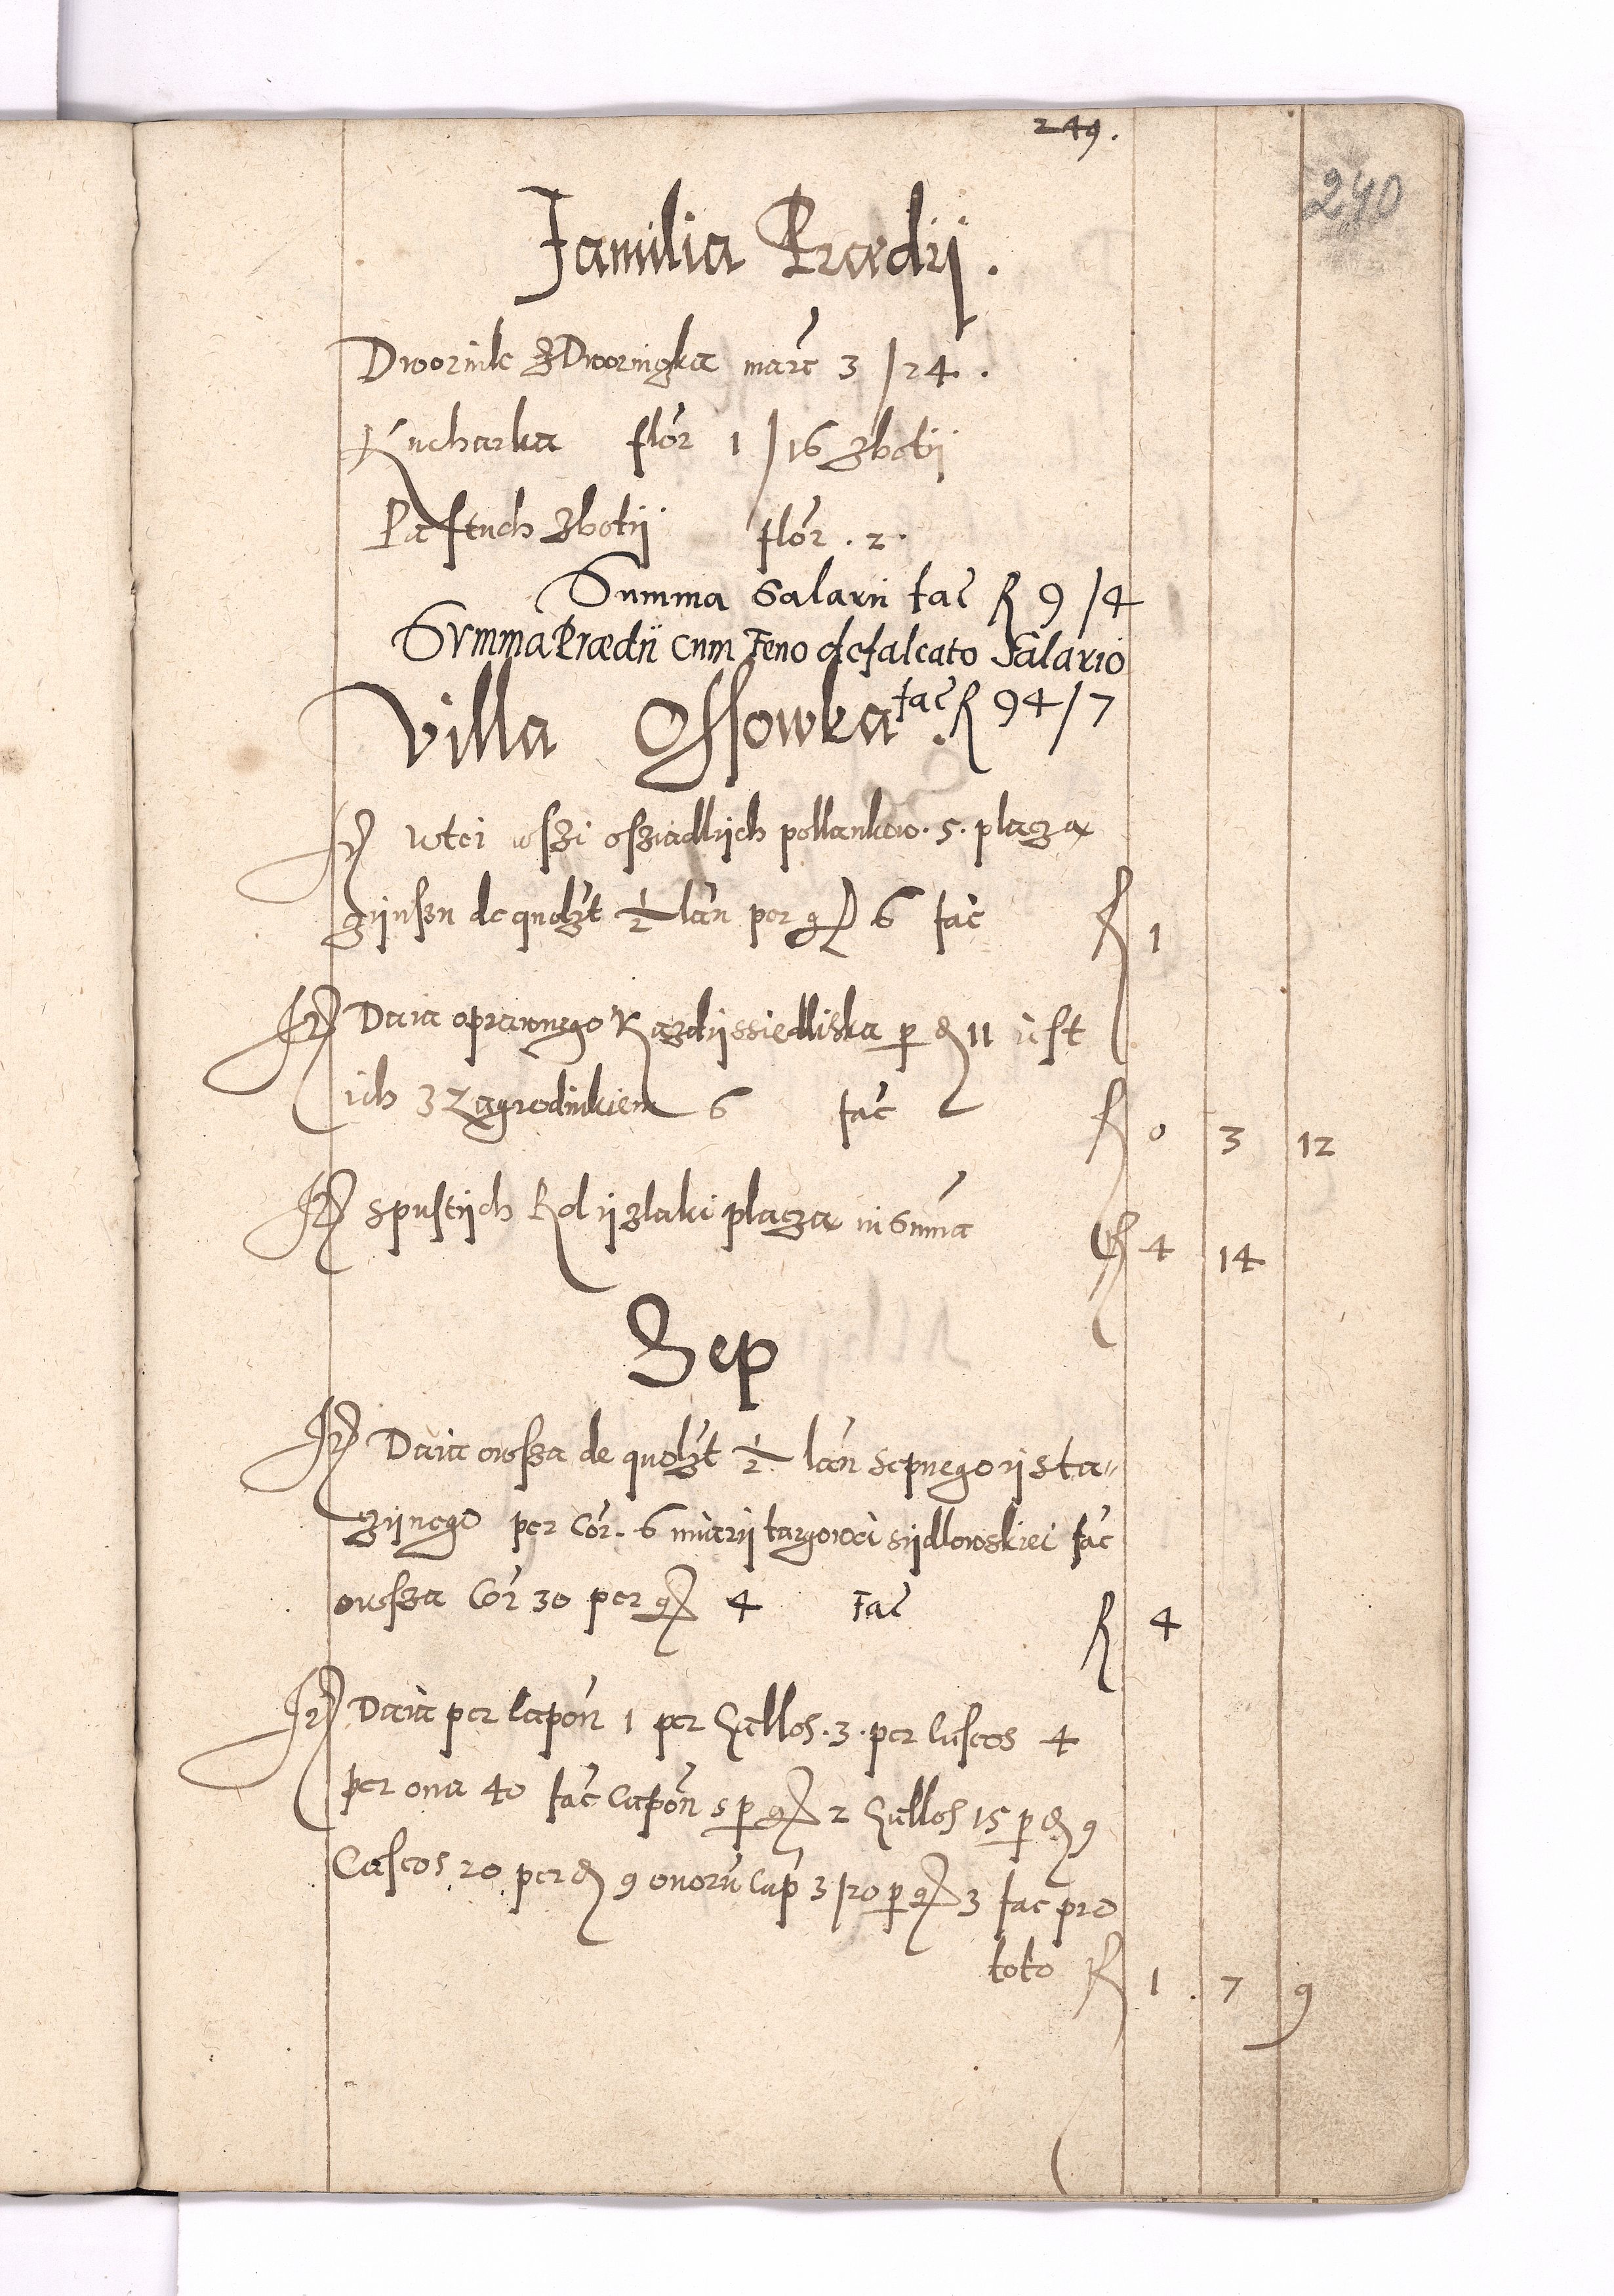 249.
240
Familia Prædij.
Dwornik ӡ Dworniցka marc 3 /24.
Kucharka flor 1 /16 zbotij
Pastuch zbotij flor . 2.
Summa Salarii fac R 9 /4
Summa Prædii cum Feno defalcato Salario
fac R 94/7
Villa Ossowka.
It wtei wszi osziadlijch pollankow. 5. placza
czijnszu de quolzt ½ lan per gr 6 fac R 1
It Daia oprawnego kazdij ssiedliska p d 11 iest
ich z zagrodnikiem 6 fac R 0 3 12
It spustijch Rol ij zlaki placza in Summa R 4 14
Sep
It Daia owsza de quolzt ½ lan sepnego ij sta„
czijnego per Cor. 6 miarij targowei sijdlowskiei fac
owsza Cor 30 per gr 4 fac R 4
It Daia per Capon 1 per Gallos. 3. per Caseos 4
per oua 40 fac Capon 5 p gr 2 Gallos 15 p d 9
Caseos 20 per d 9 ouoru Cap 3 /20 p gr 3 fac pro
toto R 1. 7 9